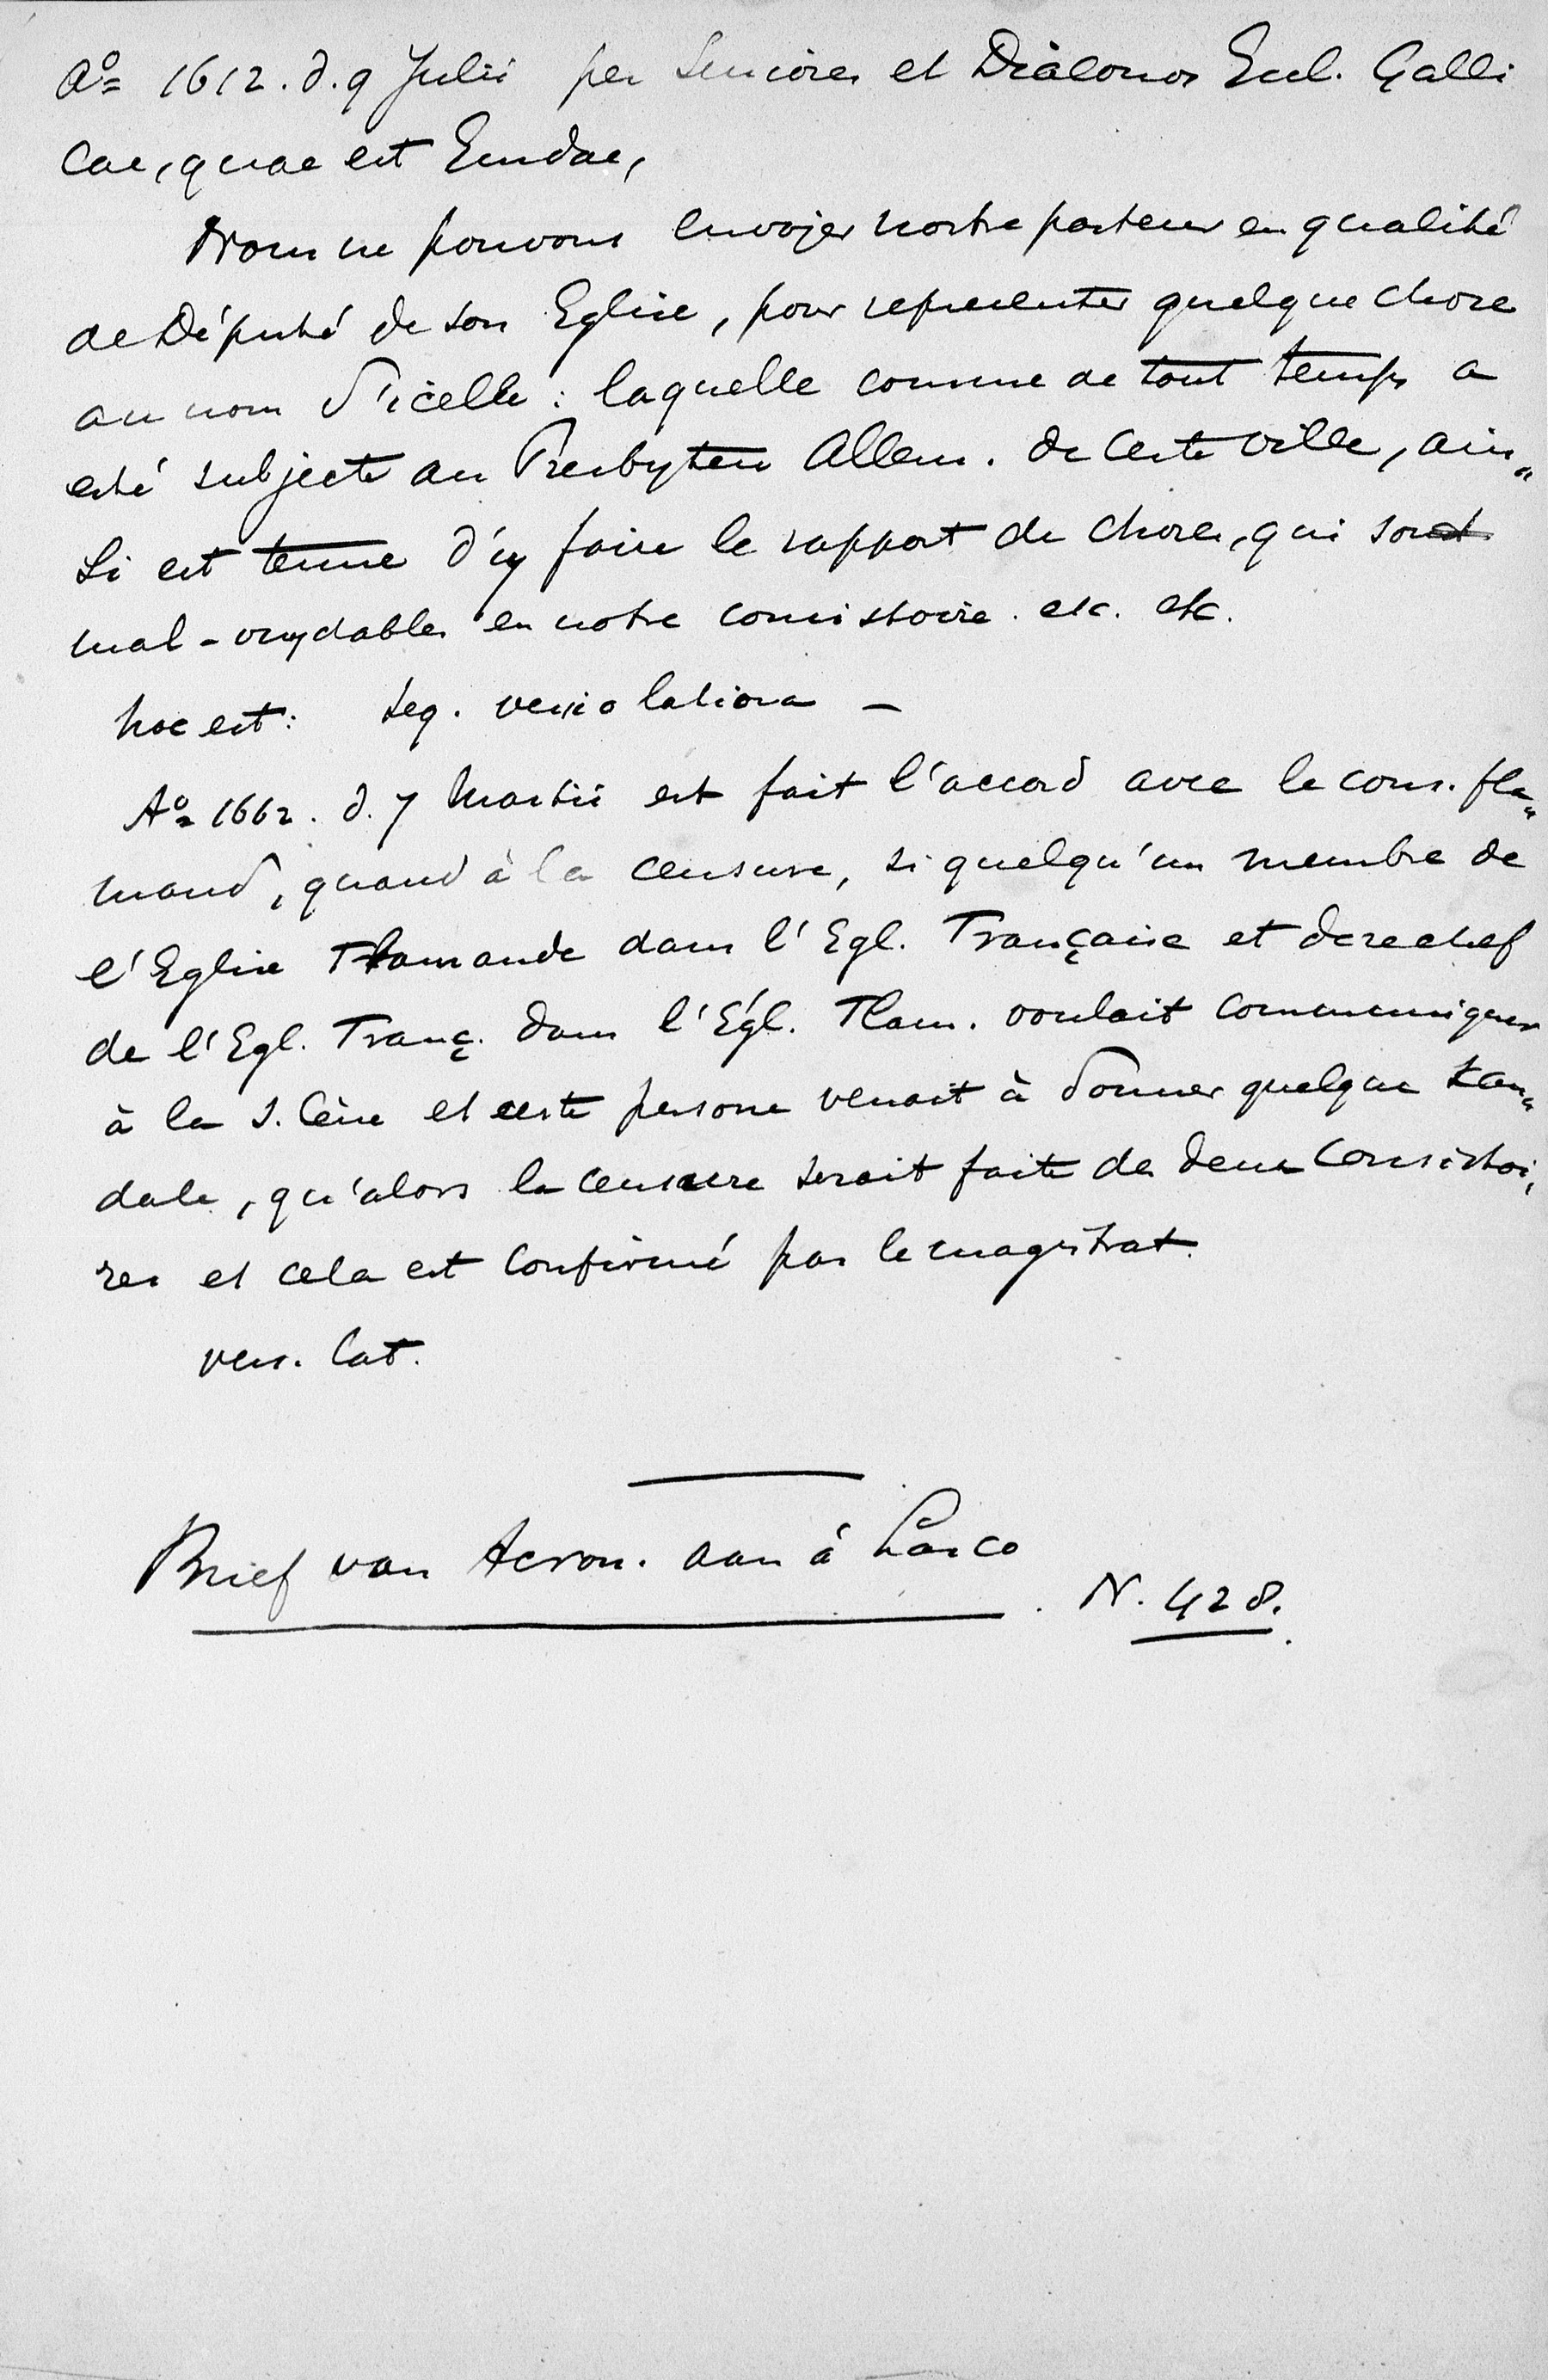 aº 1612. d. 9 Julii per Seniores et Diaconos Eccl. Galli
cae, quae est Emdae,
Nous ne pouvons envojer nostre pasteur en qualité
de Député de son Eglise, pour representer quelque chose
au nom d'icelle: laquelle comme de tout temps a
esté subjecte au Presbyterii Allem. de ceste ville, ain„
si est tenue d'y faire le rapport de choses, qui sont
mal-vuydables en notre consistoire. etc. etc.
hoc est: seq. versio latiora —
Aº 1662. d. 7 Martii est fait l'accord avec le cons. fla„
mand, quand à la censure, si quelqu'un membre de
l'Eglise Flamande dans l'Egl. Française et derechef
de l'Egl. Franç. dans l'Égl. Flam. voulait communiquer
à la S. Cène et ceste persone venait à donner quelque scan„
dale, qu'alors la censure serait faite des deux Consistoi„
res et cela est confirmé par le magistrat.
vers. lat.
Brief van Acron. aan à Lasco. N. 428.